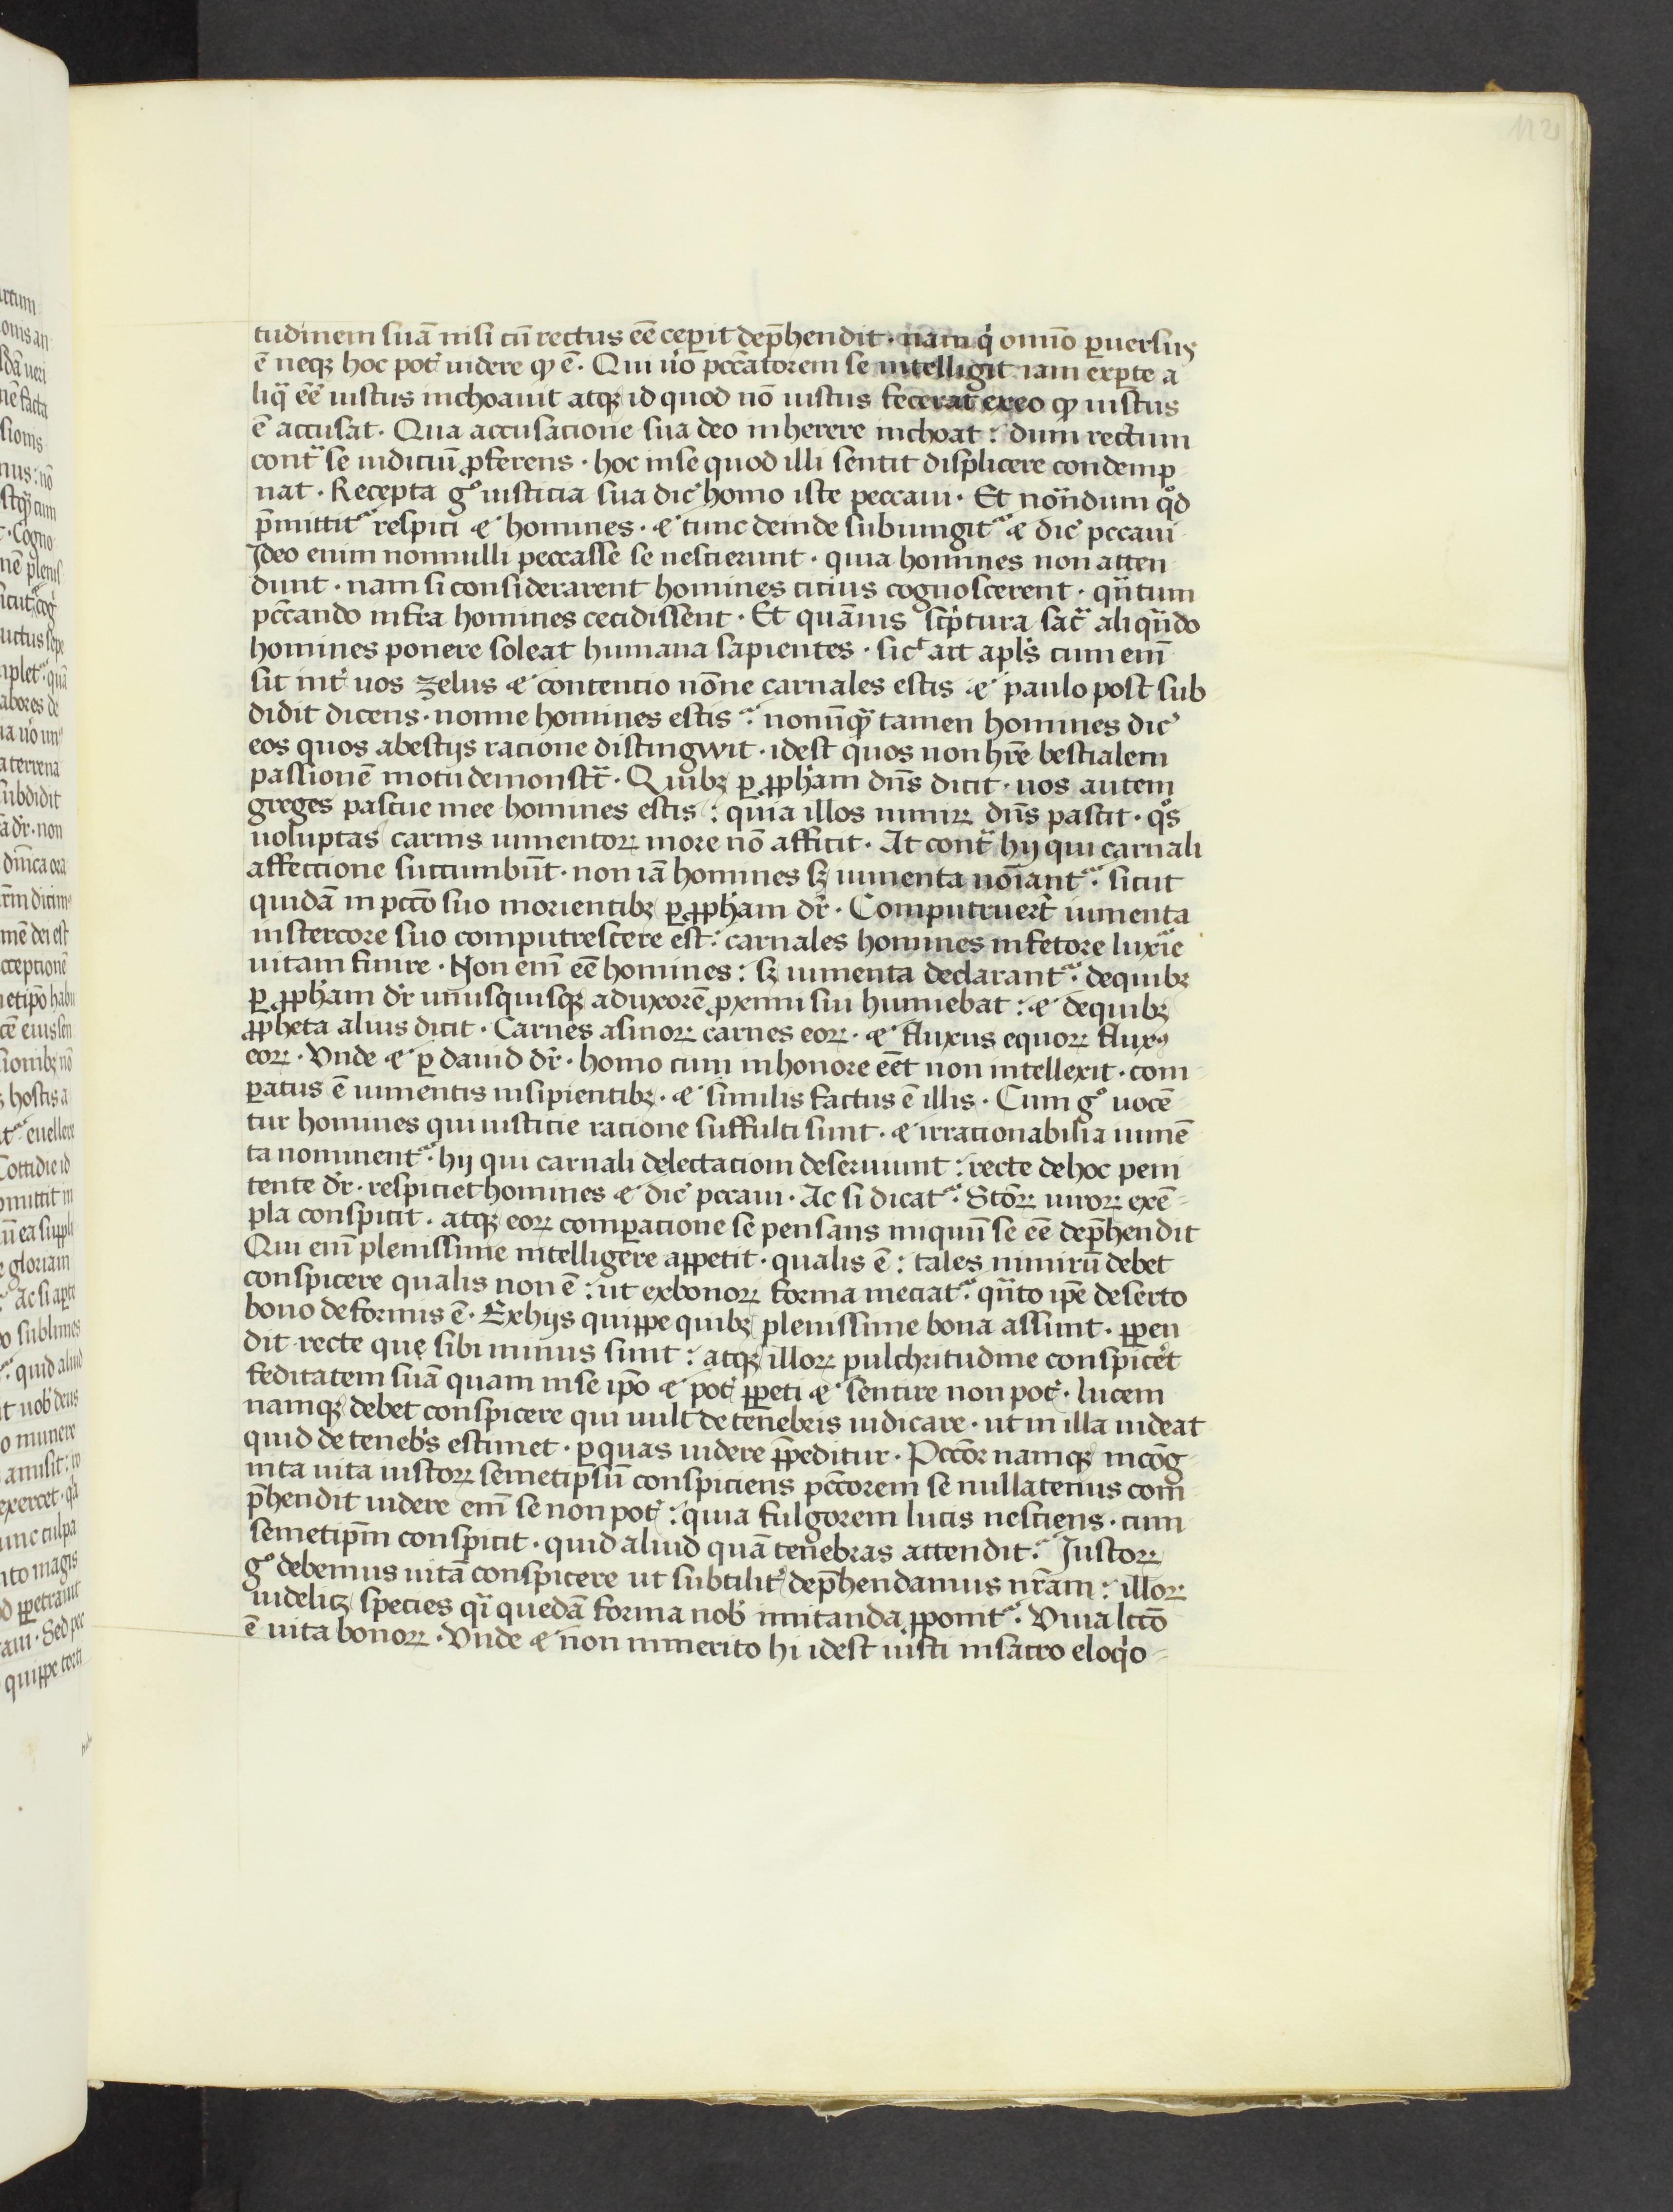 112
tudinem suā nisi cū rectus eē ceꝑit dep̄hendit · nam qͥ omīo ꝑuersus
ē neqꝫ hoc pot̉ uidere ꝙ ē · Qui ūo pcc̄atorem se intelligit iam exꝑte a
liqͣ eē iustus inchoauit atqꝫ id quod nō iustus fecerat exeo ꝙ iustus
ē accusat · Qua accusacione sua deo inherere inchoat : dum rectum
contͣ se iudiciū ꝓferens · hoc inse quod illi sentit displicere condemp
nat · Recepta gͦ iusticia sua dic̉ homo iste peccaui · Et nōndum qͦd
p̄mittit᷑ respici & homines · & tunc deinde subiungit᷑ & dic̉ pccaui
Ideo enim nonnulli peccasse se nescierunt · quia homines non atten
dunt · nam si considerarent homines citius cognoscerent · qͣntum
pc̄cando infra homines cecidissent · Et quāuis sc̓ptura sac̓ͣ aliqͣndo
homines ponere soleat humana sapientes · sic̉ ait apl̓s cum enī
sit int̉ uos zelus & contencio nōne carnales estis & paulo post sub
didit dicens · nonne homines estis ᷑ nonūꝙͣ tamen homines dic̉
eos quos abestijs racione distingwit · idest quos non hr̄e bestialem
passionē motu demonstͣt · Quibꝫ ꝑ ꝓph̓am dn̄s dicit · uos autem
greges pascue mee homines estis : quia illos nimiꝝ dn̄s pascit · qͦs
uoluptas carnis iumentoꝝ more nō afficit · At contͣ hij qui carnali
affeccione succumbūt · non iā homines sꝫ iumenta noīant᷑ · sicut
quidā in pccō suo morientibꝫ ꝑ ꝓph̓am dr̄ · Computruer̄t iumenta
instercore suo computrescere est : carnales homines infetore luxͣie
uitam finire · Non enī eē homines : sꝫ iumenta declarant᷑ · dequibꝫ
ꝑ ꝓph̓am dr̄ unusquisqꝫ aduxorē ꝓximi sui hinniebat : & dequibꝫ
ꝓpheta alius dicit · Carnes asinoꝝ carnes eoꝝ · & fluxus equoꝝ fluxꝰ
eoꝝ · Vnde & ꝑ dauid dr̄ · homo cum inhonore eēt non intellexit · com
ꝑatus ē iumentis insipientibꝫ · & similis factus ē illis · Cum gͦ uocē
tur homines qui iusticie racione suffulti sunt · & irracionabilia iumē
ta nominent᷑ · hij qui carnali delectacioni deseruiunt : recte dehoc peni
tente dr̄ · respiciet homines & dic̉ pccaui · Ac si dicat᷑ · Stōꝝ uiroꝝ exē
pla conspicit · atqꝫ eoꝝ comꝑacione se pensans iniquū se eē dep̄hendit
Qui enī plenissime intelligere appetit · qualis ē : tales nimirū debet
conspicere qualis non ē : ut exbonoꝝ forma meciat᷑ · qͣnto ip̄e deserto
bono deformis ē · Exhijs quippe quibꝫ plenissime bona assunt · ꝑpen
dit recte que sibi minus sunt : atqꝫ illoꝝ pulchritudine conspicēt
feditatem suā quam inse ip̄o & pot̉ ꝑpeti & sentire non pot̉ · lucem
namqꝫ debet conspicere qui uult de tenebris iudicare · ut in illa uideat
quid de teneb̓s estimet · ꝑ quas uidere p̄peditur · Pccōr namqꝫ incōg
nita uita iustoꝝ semetip̄sū conspiciens pcc̄orem se nullatenus com
p̄hendit uidere enī se non pot̉ : quia fulgorem lucis nesciens · cum
semetip̄m conspicit · quid aliud quā tenebras attendit ᷑ Iustoꝝ
gͦ debemus uitā conspicere ut subtilit̉ dep̄hendamus nr̄am : illoꝝ
uidelicꝫ species qͣi quedā forma nob̓ imitanda ꝓponit᷑ · Viua lccō
ē uita bonoꝝ · Vnde & non inmerito hi idest iusti insacro eloqͥo